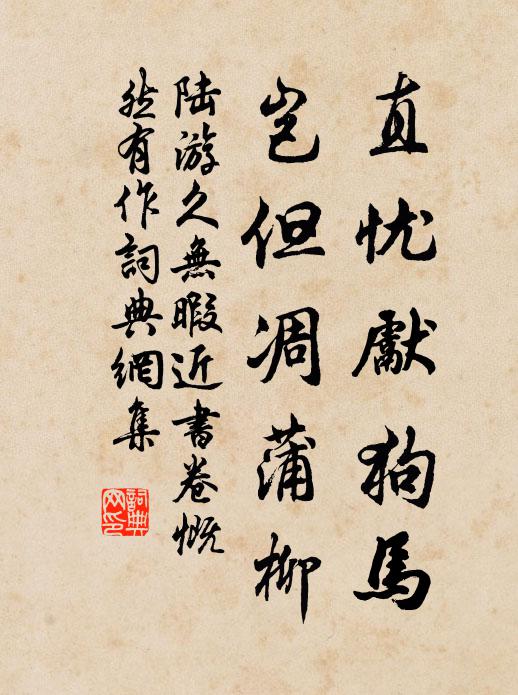 直忧獻狗馬
岂但凋蒲柳
陆游久無暇近書卷慨
然有作詞典網集
詞典
网印